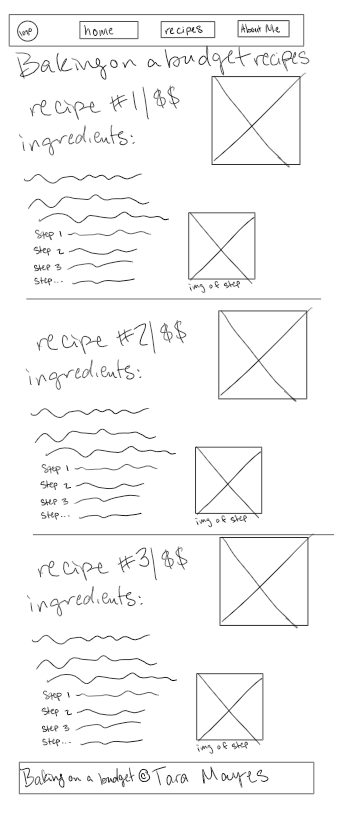 home recipes About Me
Baking on a budget recipes
recipe #1|$$
ingredients:
Step 1
Step 2
Step 3
Step...
img of step
recipe #2|$$
ingredients:
Step 1
Step 2
Step 3
Step...
img of step
recipe #3|$$
ingredients:
Step 1
Step 2
Step 3
Step...
img of step
Baking on a budget © Tara Mayes